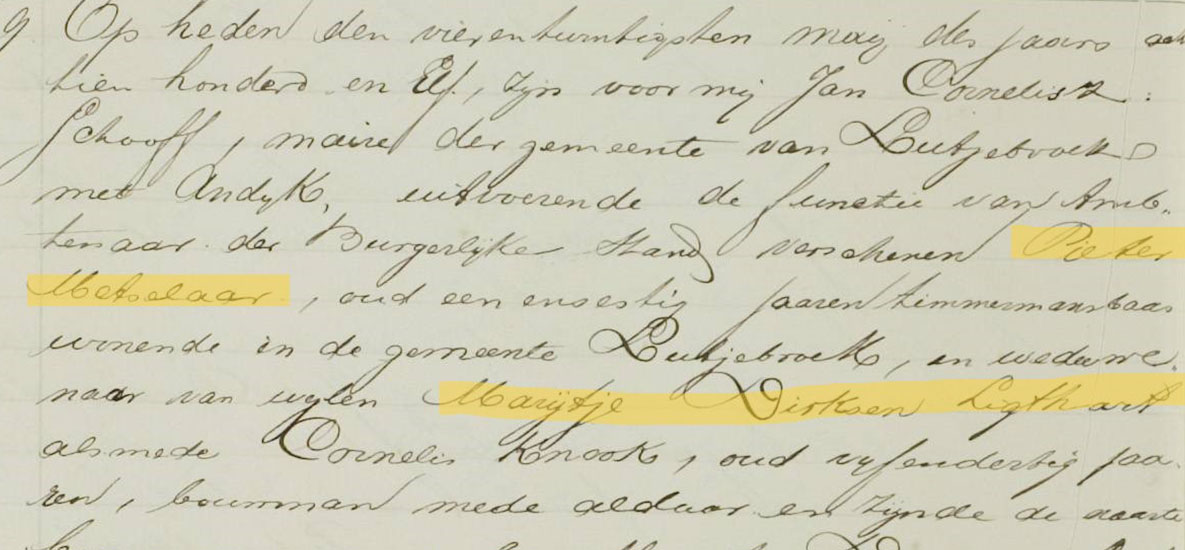 9. Op heden den vierentwintigsten maij des jaars ach
tien honderd en Elf, zijn voor mij Jan Cornelisz:
Schooff, maire der gemeente van Lutjebroek
met Andyk, uitvoerende de functie van Amb-
tenaar der Burgerlijke Stand verschenen Pieter
Metselaar, oud een en sestig jaaren timmermansbaas
wonende in de gemeente Lutjebroek, en weduwe-
naar van wylen Marijtje Dirksen Ligthart
alsmede Cornelis Knook, oud vyfendertig jaa-
ren, bouwman mede aldaar en zynde de naaste